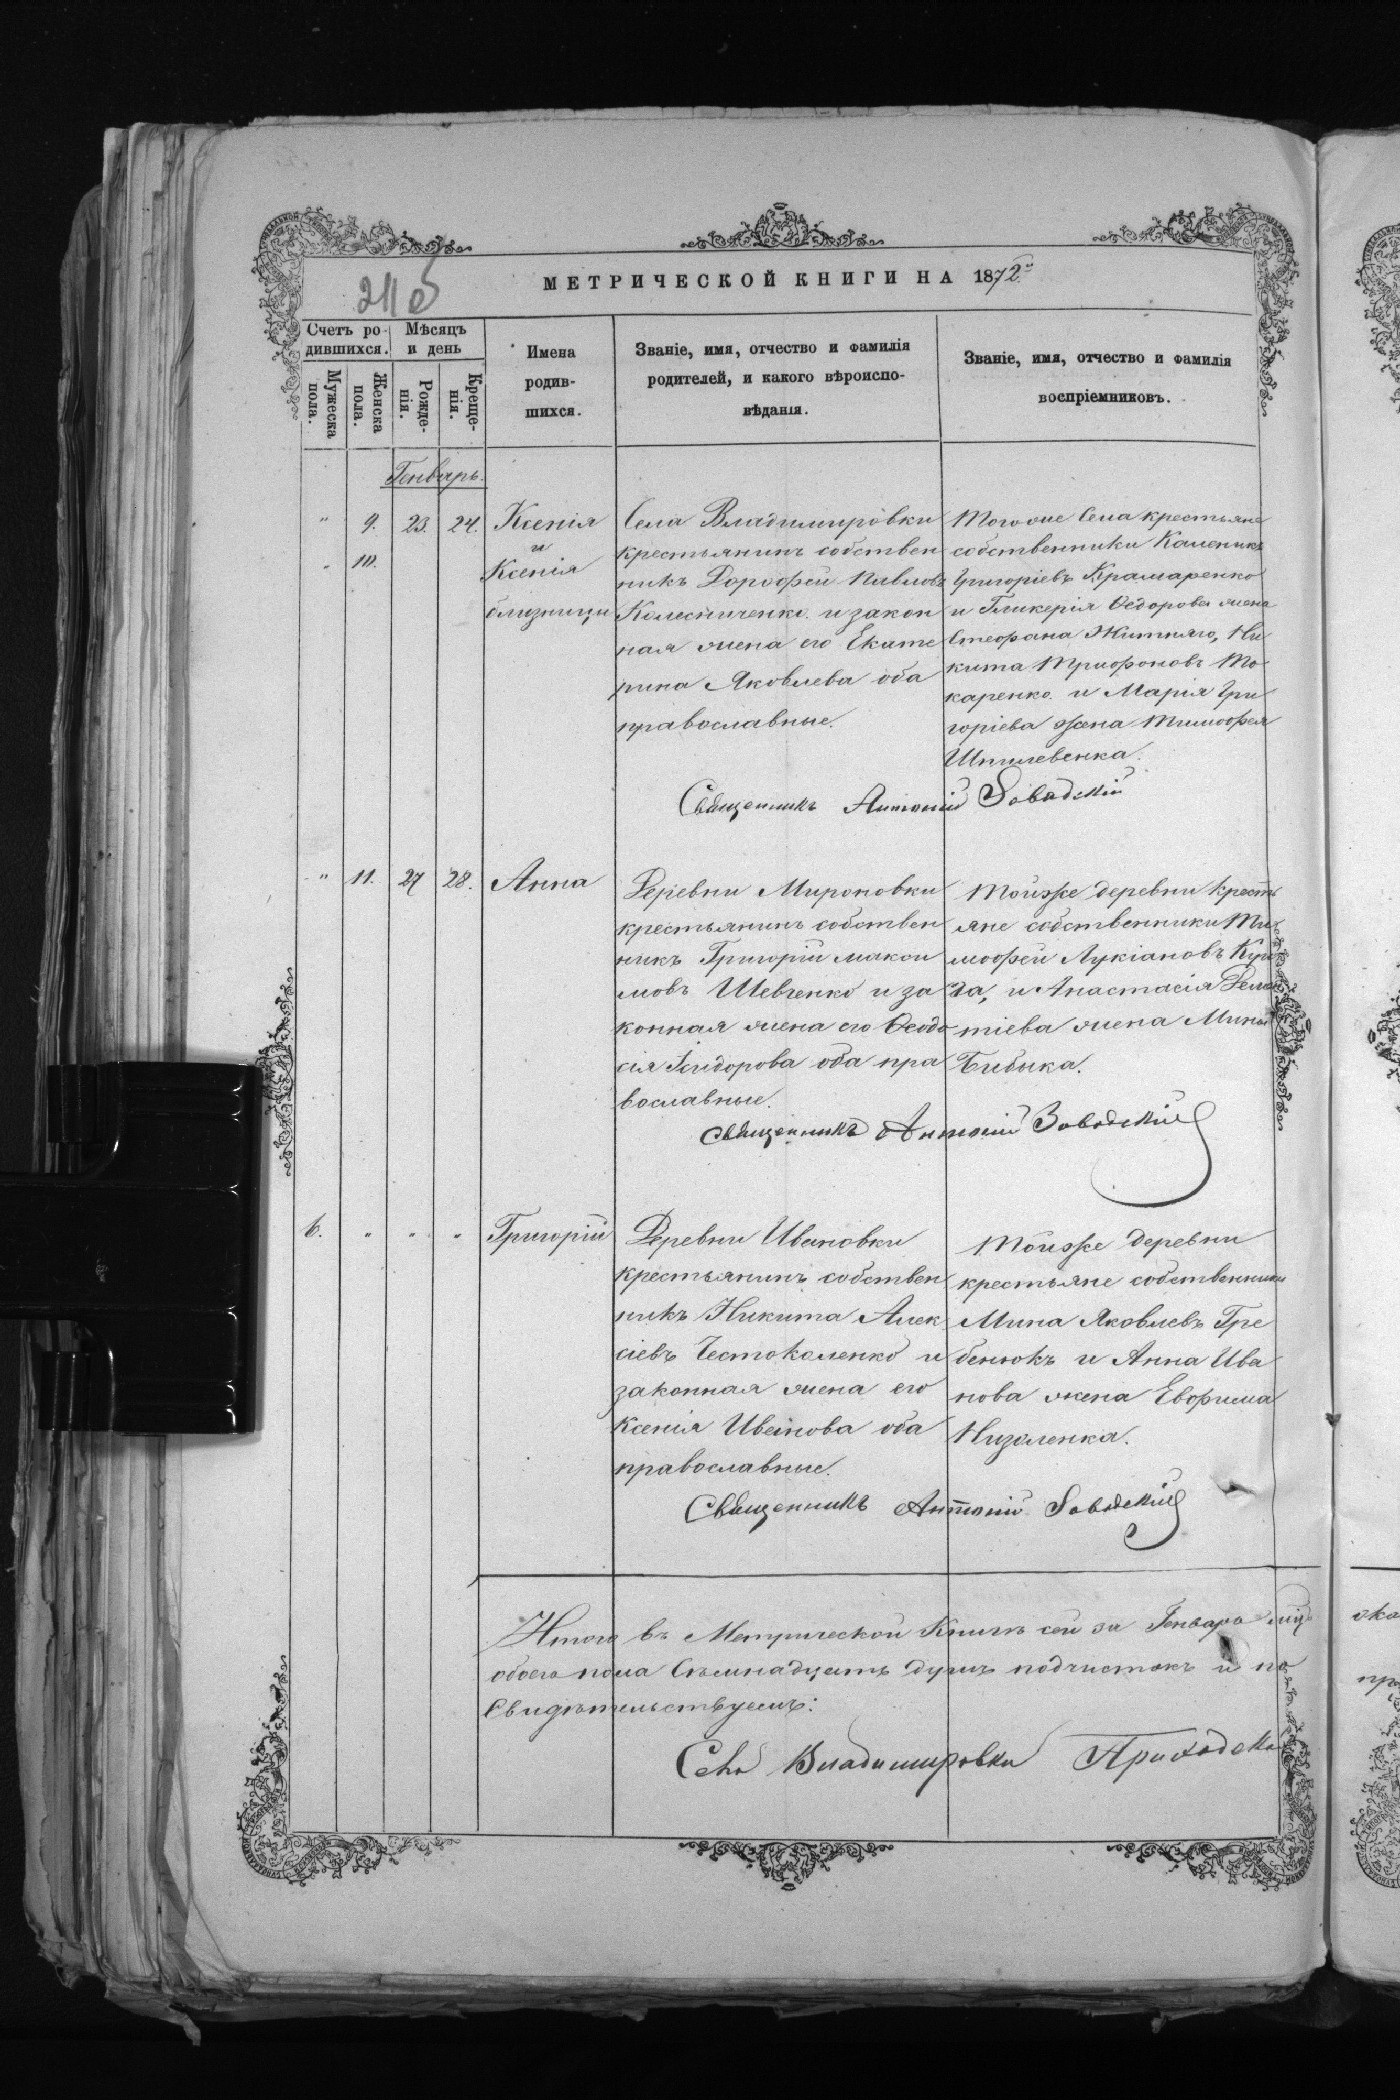 211 об
МЕТРИЧЕСКОЙ КНИГИ НА 1872й
Счетъ ро-
дившихся.
Мѣсяцъ
и день
Мужеска
пола.
Женска
пола.
Рожде-
нія.
Креще-
нія.
Имена
родив-
шихся.
Званіе, имя, отчество и фамилія
родителей, и какого вѣроиспо-
вѣданія.
Званіе, имя, отчество и фамилія
воспріемниковъ.
Генварь.
" 9. 23. 24. Ксенія
и
" 10. Ксенія
близницы
Села Владимировки
крестьянинъ собствен
никъ Дорофей Павловъ
Колесниченко и закон
ная жена его Екате
рина Яковлева оба
православные.
Тогоже Села крестьяне
собственники Каленикъ
Григоріевъ Крамаренко
и Гликерія Ѳедорова жена
Стефана Житняго, Ни
кита Трифоновъ То
каренко и Марія Гри
горіева жена Тимофея
Шпилевенка.
Священникъ Антоній Заводскій
" 11. 27 28. Анна
Деревни Мироновки
крестьянинъ собствен
никъ Григорій Макси
мовъ Шевченко и за
конная жена его Ѳеодо
сія Ісидорова оба пра
вославные.
Тойже деревни крестъ
яне собственники Ти
мофей Лукіановъ
и Анастасія
тіева жена Мины
Бибика.
Священникъ Антоній Заводскій
6. " " " Григорій
Деревни Ивановки
крестьянинъ собствен
никъ Никита Алек
сіевъ Честокаленко и
законная жена его
Ксенія Иванова оба
православные.
Тойже деревни
крестьяне собственники
Мина Яковлевъ Гре
бенюкъ и Анна Ива
нова жена Евфима
Низоленка.
Священникъ Антоній Заводскій
Итого въ Метрической Книгѣ сей за Генварь мц
обоего пола Семнадцать душъ подчистокъ и по
Свидѣтельствуемъ:
Села Владимировки Приходска